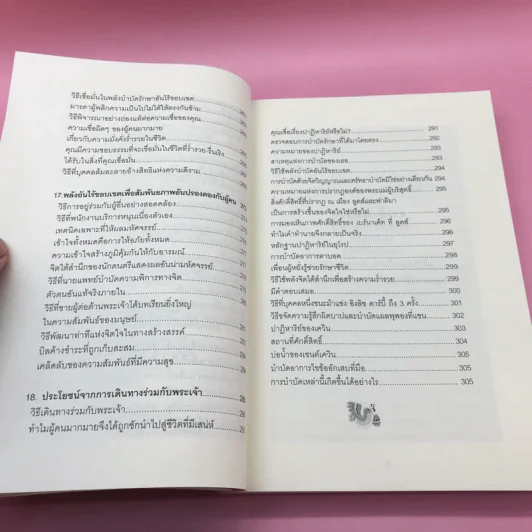 วิธีเชื่อมั่นในพลังบำบัดรักษาอันไร้ขอบเขต
มารดาผู้พลิกความเป็นไปไม่ได้ให้ตรงกันข้าม
วิธีพิจารณาอย่างถ่องแท้ต่อความเชื่อของคุณ
ความเชื่อผิดๆ ของผู้คนมากมาย
เกี่ยวกับความมั่งคั่งร่ำรวยในชีวิต
คุณมีความชอบธรรมที่จะเชื่อมั่นในชีวิตที่ร่ำรวย-รื่นเริง
ได้รับในสิ่งที่คุณเชื่อมั่น
วิธีที่บุคคลล้มละลายอ้างสิทธิแห่งความดีงาม
17.พลังอันไร้ขอบเขตเพื่อสัมพันธภาพอันปรองดองกับผู้คน
วิธีการอยู่ร่วมกับผู้อื่นอย่างสอดคล้อง
วิธีที่พนักงานบริการหนุนเนื่องตัวเอง
เทคนิคเฉพาะที่ให้ผลมหัศจรรย์
เข้าใจทั้งหมดคือการให้อภัยทั้งหมด
ความเข้าใจสร้างภูมิคุ้มกันให้กับอารมณ์
จิตใต้สำนึกของนักดนตรีแสดงผลอันน่ามหัศจรรย์
วิธีที่นายแพทย์บำบัดความพิการทางจิต
ตัวตนอันแท้จริงภายใน
วิธีที่ชายผู้ต่อต้านพระเจ้าได้บทเรียนยิ่งใหญ่
ในความสัมพันธ์ของมนุษย์
วิธีพัฒนาท่าทีแห่งจิตใจในทางสร้างสรรค์
ปิสค้างชำระที่ถูกเก็บสะสม
เคล็ดลับของความสัมพันธ์ที่มีความสุข
18. ประโยชน์จากการเดินทางร่วมกับพระเจ้า
วิธีเดินทางร่วมกับพระเจ้า
ทำไมผู้คนมากมายจึงได้ถูกชักนำไปสู่ชีวิตที่มีเสน่ห์
คุณเชื่อเรื่องปาฏิหาริย์หรือไม่? 291
ตรวจสอบการบำบัดรักษาที่ได้มาโดยตรง 292
ความหมายของปาฏิหาริย์
สาเหตุแห่งการบำบัดของเธอ
วิธีใช้พลังบำบัดอันไร้ขอบเขต
การบำบัดด้วยจิตวิญญาณและศรัทธาบำบัดมิใช่อย่างเดียวกัน
ความหมายแห่งการปรากฏองค์ของพระแม่ผู้บริสุทธิ์
สิ่งศักดิ์สิทธิ์ที่ปรากฏ ณ เมือง ลูดส์และฟาติมา
เป็นการสร้างขึ้นของจิตใจใช่หรือไม่ 295
การมองเห็นภาพศักดิ์สิทธิ์ของ เบร์นาเด็ท ที่ ลูดส์ 296
ทำไมคำทำนายจึงกลายเป็นจริง 297
หลักฐานปาฏิหาริย์ในยุโรป
การบำบัดอาการตาบอด
เพื่อนผู้หยั่งรู้ช่วยรักษาชีวิต
วิธีใช้พลังจิตใต้สำนึกเพื่อสร้างความร่ำรวย
มีคำตอบเสมอ
วิธีที่บุคคลหนึ่งชนะม้าแข่ง อิงลิช ดาร์บี้ ถึง 3 ครั้ง 301
วิธีขจัดความรู้สึกผิดบาปและบำบัดแผลพุพองที่แขน
ปาฏิหาริย์ของเควิน 303
สถานที่ศักดิ์สิทธิ์ 304
บ่อน้ำของเซนต์เควิน 305
บำบัดอาการไขข้ออักเสบที่มือ 305
การบำบัดเหล่านี้เกิดขึ้นได้อย่างไร 305